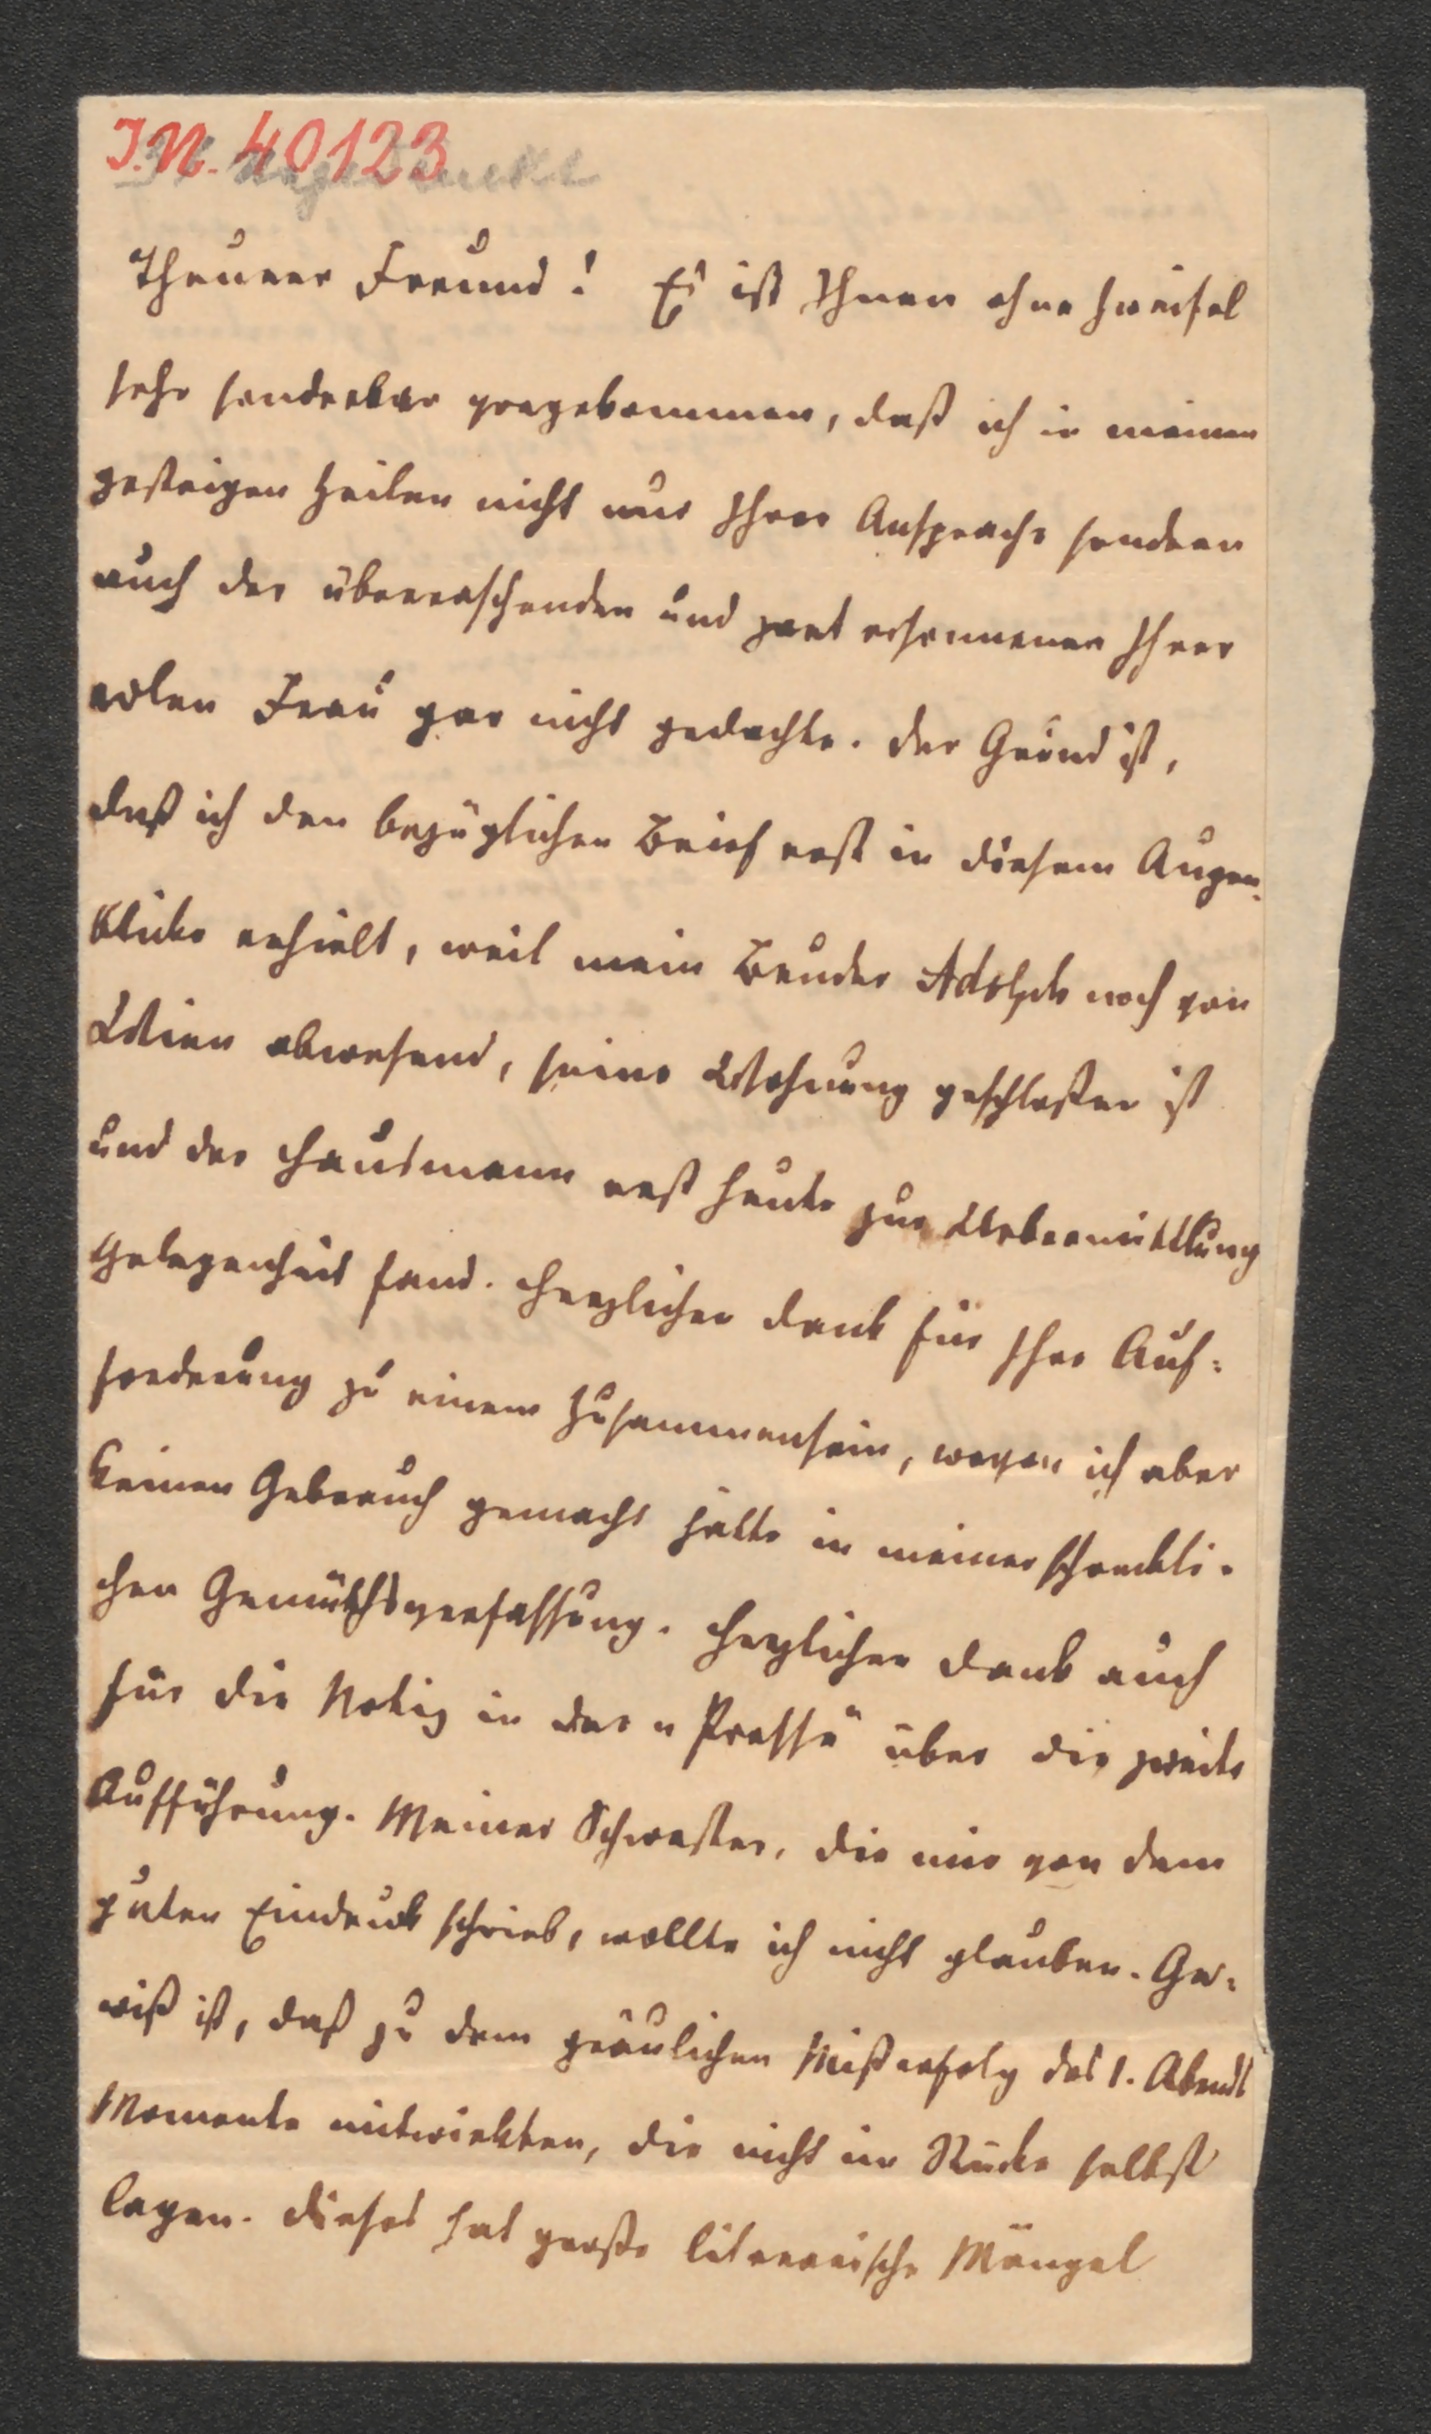 I.N. 40123
Theurer Freund! Es ist Ihnen ohne Zweifel
sehr sonderbar vorgekommen, daß ich in meinen
gestrigen Zeilen nicht nur Ihrer Ansprache sondern
auch der überraschenden und zart ersonnenen Ihrer
edlen Frau gar nicht gedachte. Der Grund ist,
daß ich den bezüglichen Brief erst in diesem Augen-
blicke erhielt, weil mein Bruder Adolph noch von
Wien abwesend, seine Wohnung geschloßen ist
und der Hausmann erst heute zur Uebermittlung
Gelegenheit fand. Herzlichen Dank für Ihre Auf-
forderung zu einem Zusammensein, wovon ich aber
keinen Gebrauch gemacht hätte in meiner schreckli-
chen Gemüthsverfassung. Herzlichen Dank auch
für die Notiz in der "Presse" über die zweite
Aufführung. Meiner Schwester, die mir von dem
guten Eindruck schrieb, wollte ich nicht glauben. Ge-
wiß ist, daß zu dem gräulichen Mißerfolg des 1. Abends
Momente mitwirkten, die nicht im Stücke selbst
lagen. Dieses hat große literarische Mängel